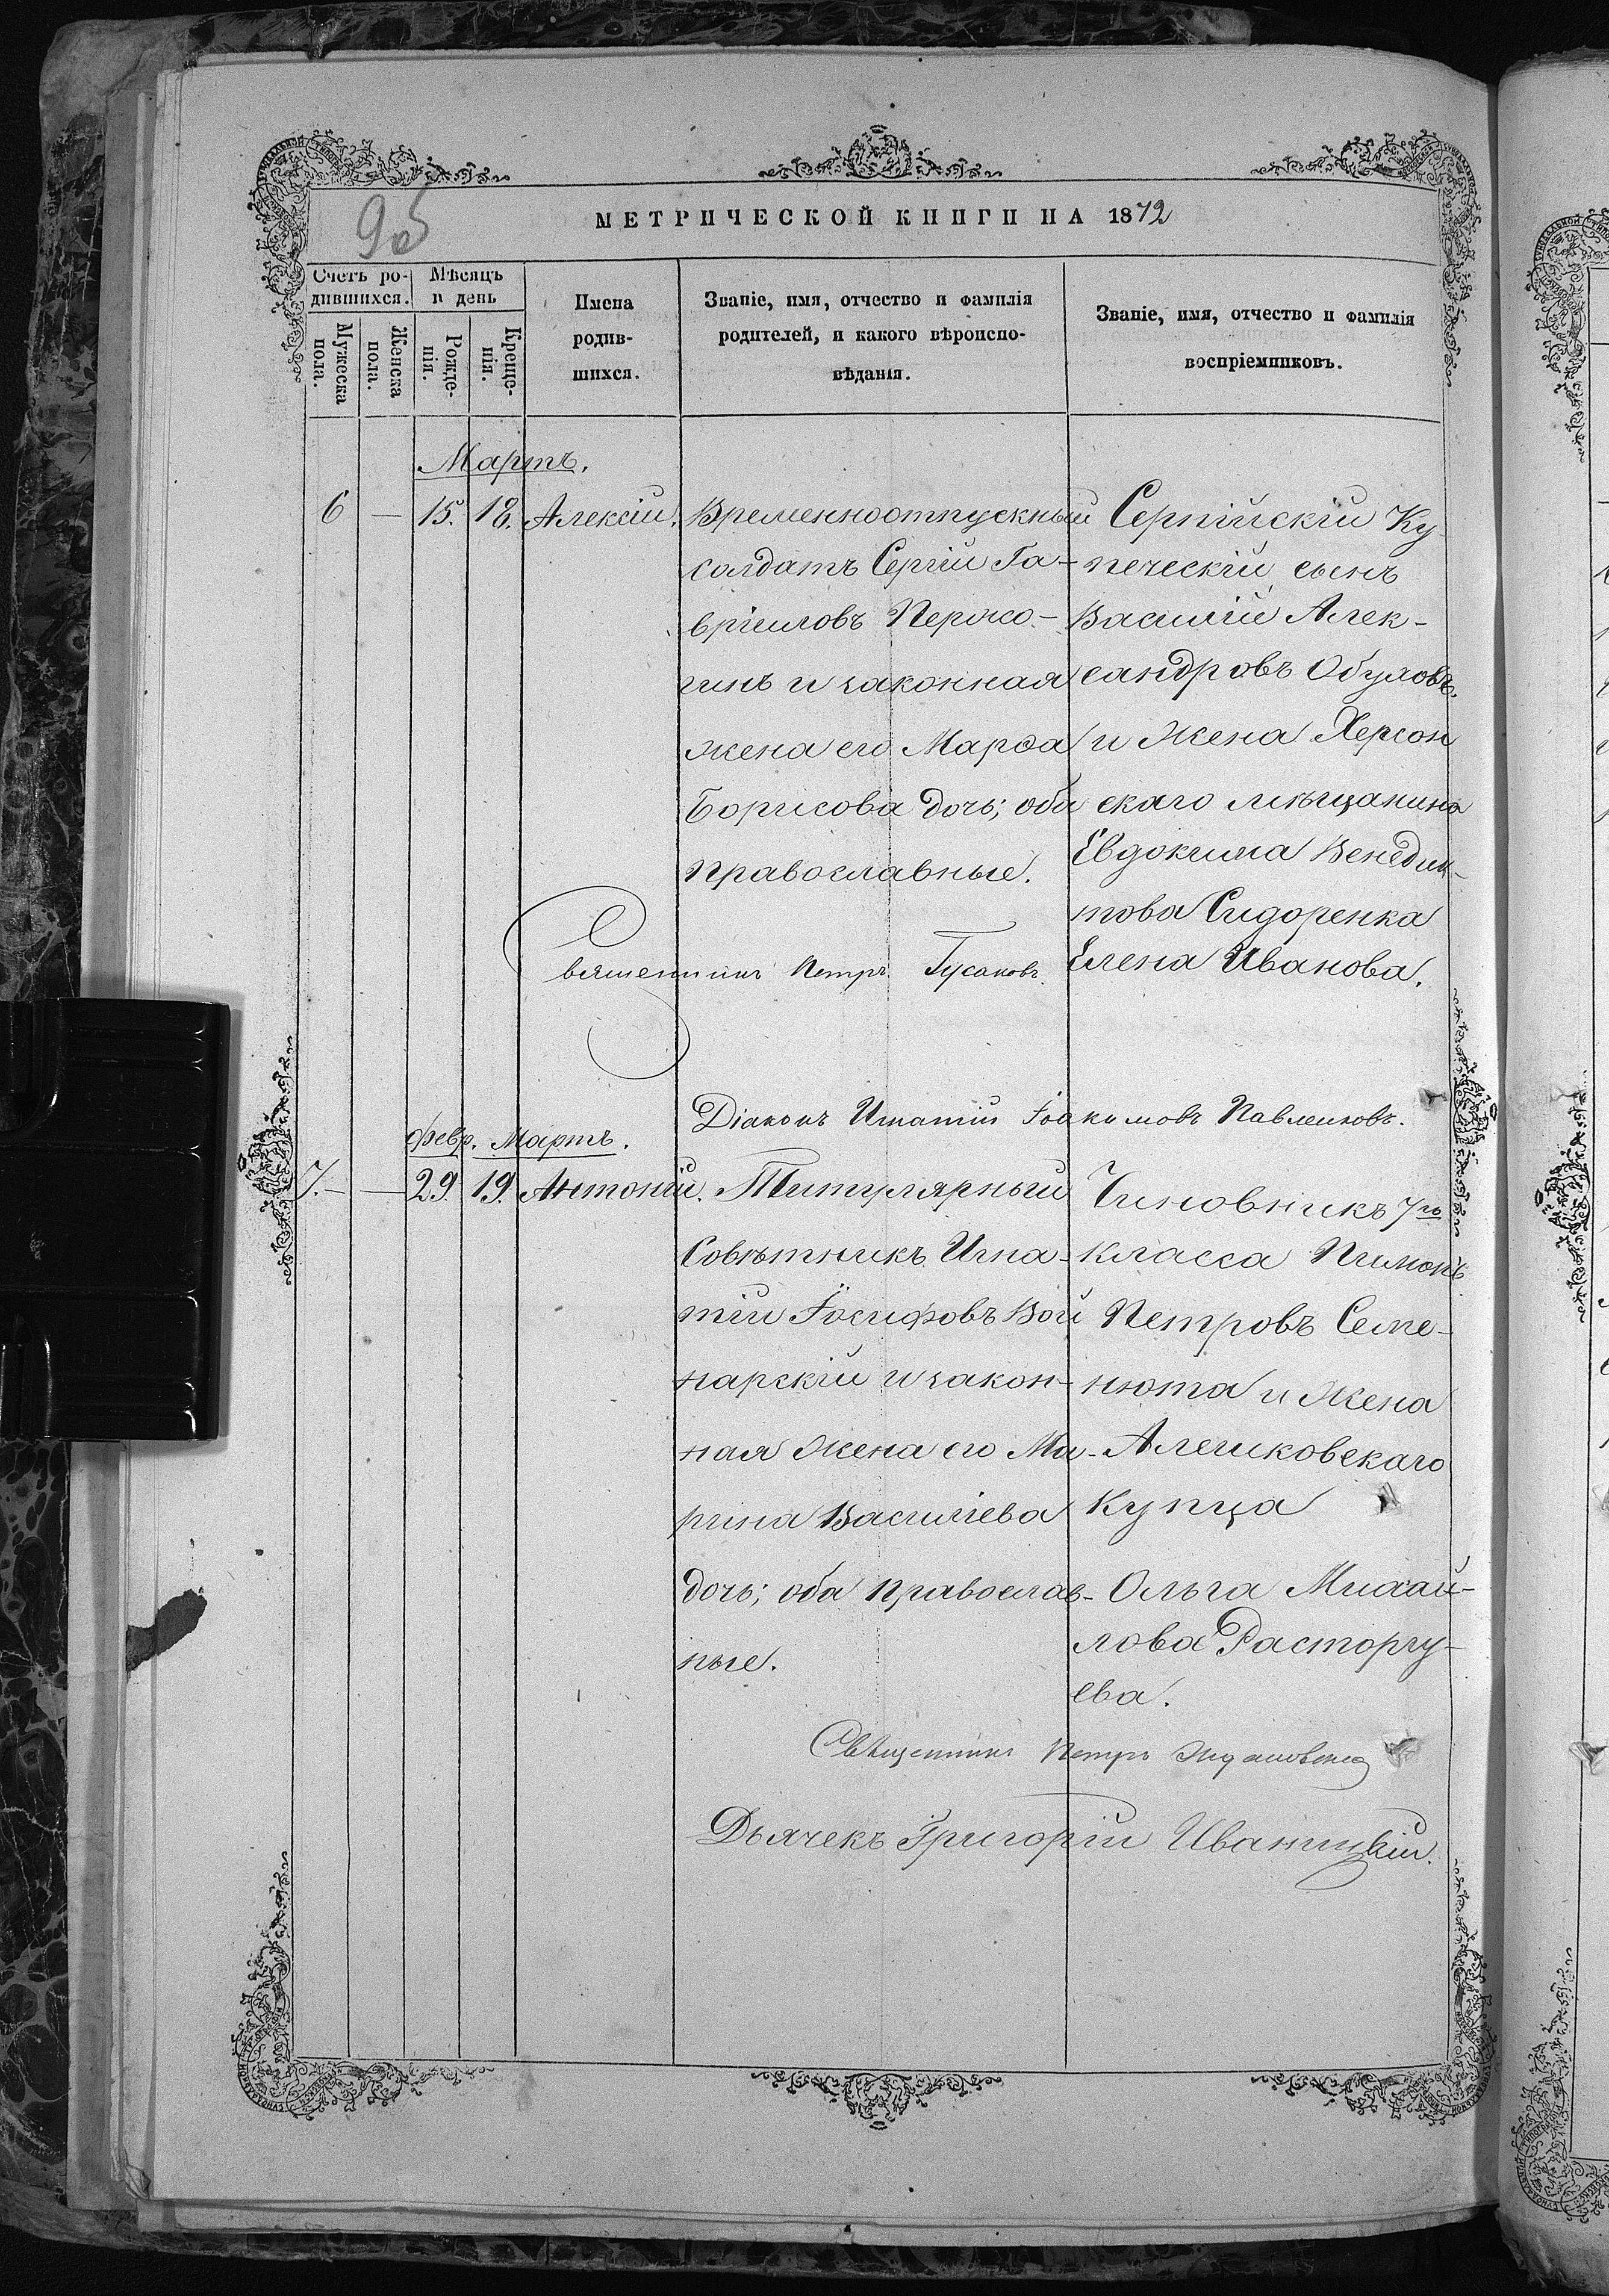 МЕТРИЧЕСКОЙ КНИГИ НА 1872
Счетъ ро-
дившихся.
Мѣсяцъ
и день
Мужеска
пола.
Женска
пола.
Рожде-
нія.
Креще-
нія.
Имена
родив-
шихся.
Званіе, имя, отчество и фамилія
родителей, и какого вѣроиспо-
вѣданія.
Званіе, имя, отчество и фамилія
воспріемниковъ.
Мартъ.
6 — 15. 18. Алексій.
Временноотпускный
солдатъ Сергій Га-
вріиловъ Пержо-
гинъ и законная
жена его Марѳа
Борисова дочь; оба
православные.
Серпійскій Ку
печескій сынъ
Василій Алек-
сандровъ Обуховъ,
и жена Херсон
скаго мѣщанина
Евдокима Венедик-
това Сидоренка
Елена Иванова.
Священникъ Петръ Гусаковъ.
Діаконъ Игнатій Іоакимовъ Павленковъ.
Февр. Мартъ.
7. — — 29. 19. Антоній.
Титулярный
Совѣтникъ Игна-
тій Іосифовъ Вой
нарскій и закон-
ная жена его Ма-
рина Василіева
дочь; оба православ-
ные.
Чиновникъ 7го
класса Пимонъ
Петровъ Семе-
нюта и жена
Алешковскаго
купца
Ольга Михай-
лова Расторгу-
ева.
Священникъ Петръ
Дьячекъ Григорій Иваницкій.